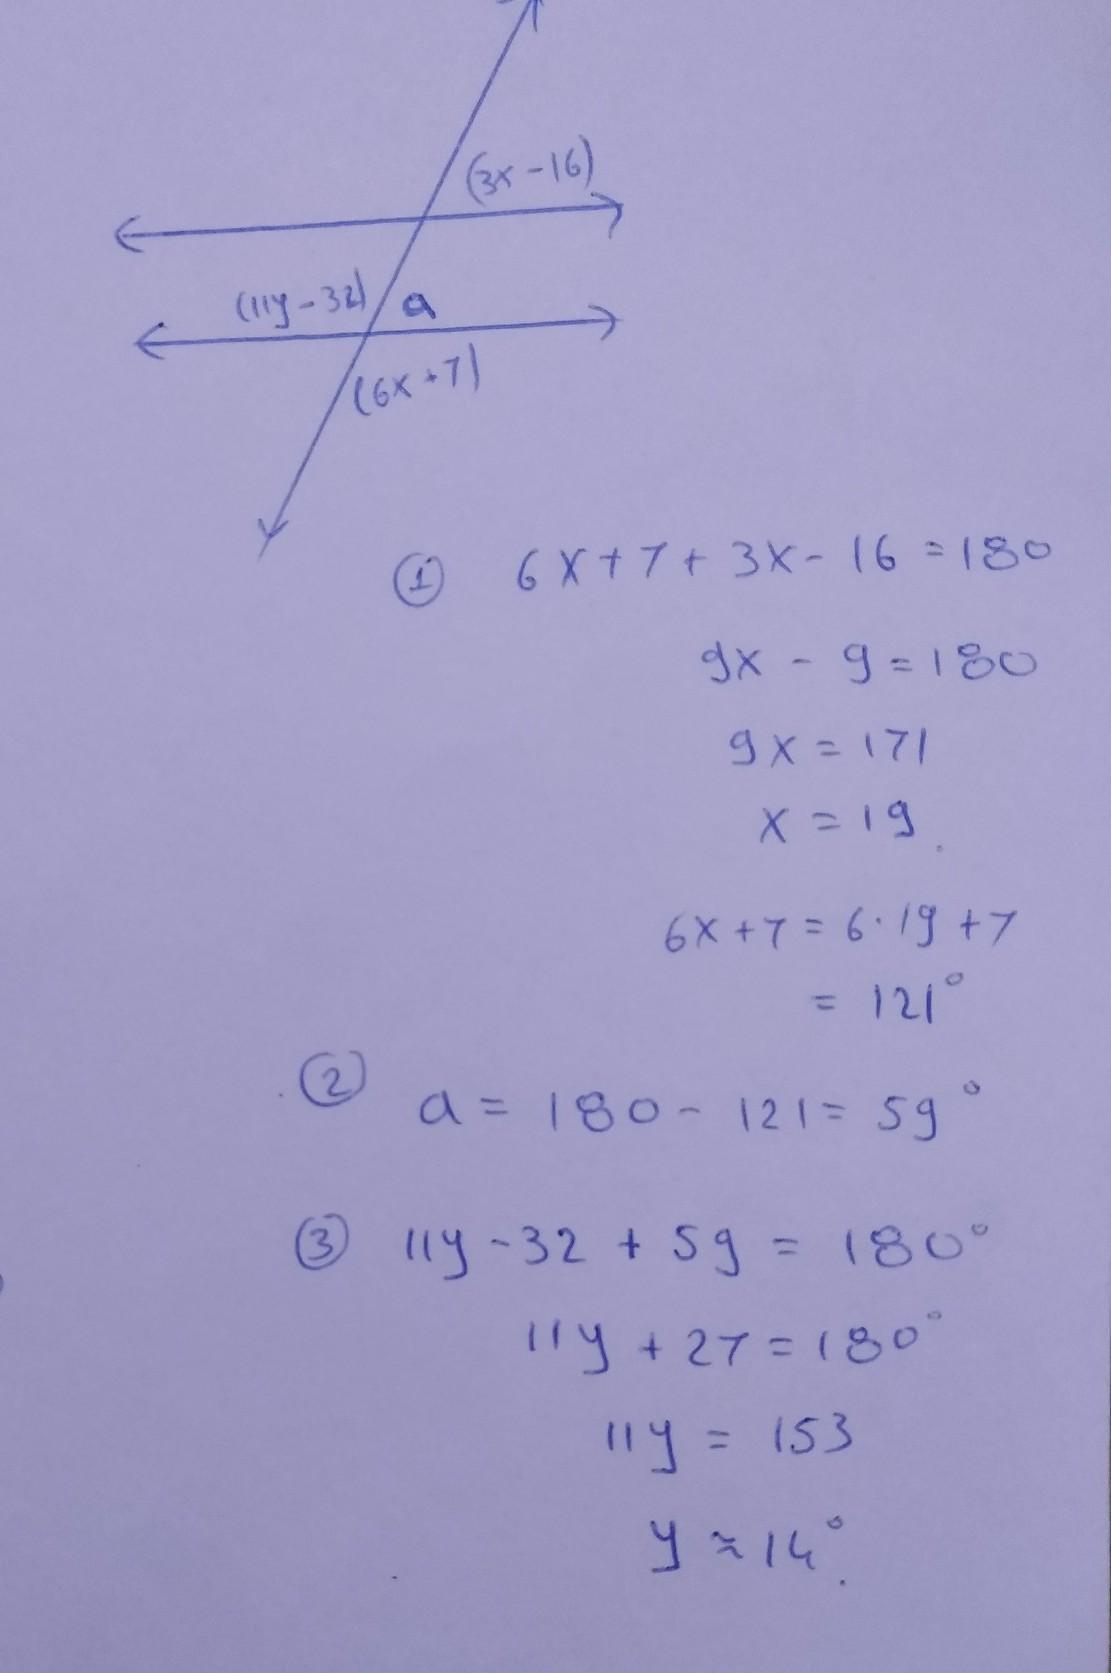 (3x-16)
(11y-32) a
(6x+7)
① 6x+7+3x-16=180
9x-9=180
9x=171
x=19.
6x+7=6·19+7
=121°
② a=180-121=59°
③ 11y-32+59=180°
11y+27=180°
11y=153
y≈14°.